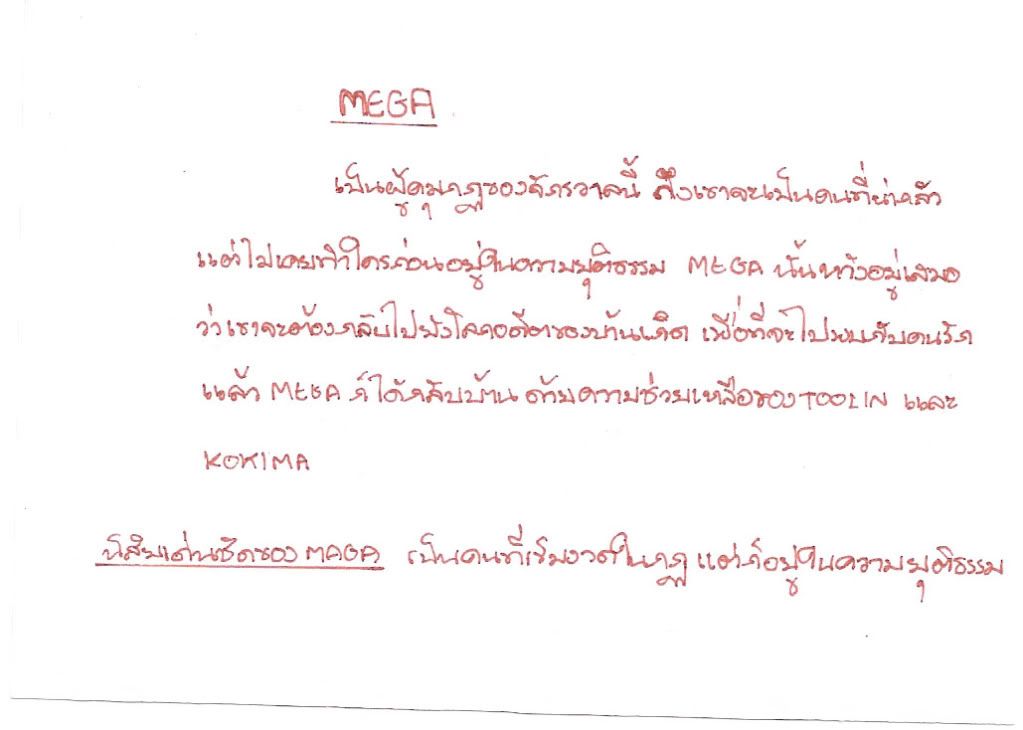 MEGA
เป็นผู้คุมกฎของจักรวาลนี้ ถึงเขาจะเป็นคนที่น่ากลัว
แต่ไม่เคยทำใครก่อนอยู่ในความยุติธรรม MEGA นั้นหวังอยู่เสมอ
ว่าเขาจะต้องกลับไปยังโลกอดีตของบ้านเกิด เพื่อที่จะไปพบกับคนรัก
แล้ว MEGA ก็ได้กลับบ้าน ด้วยความช่วยเหลือของ TOOLIN และ
KOKIMA
นิสัยเด่นชัดของ MAGA เป็นคนที่เข้มงวดในกฎ แต่ก็อยู่ในความยุติธรรม